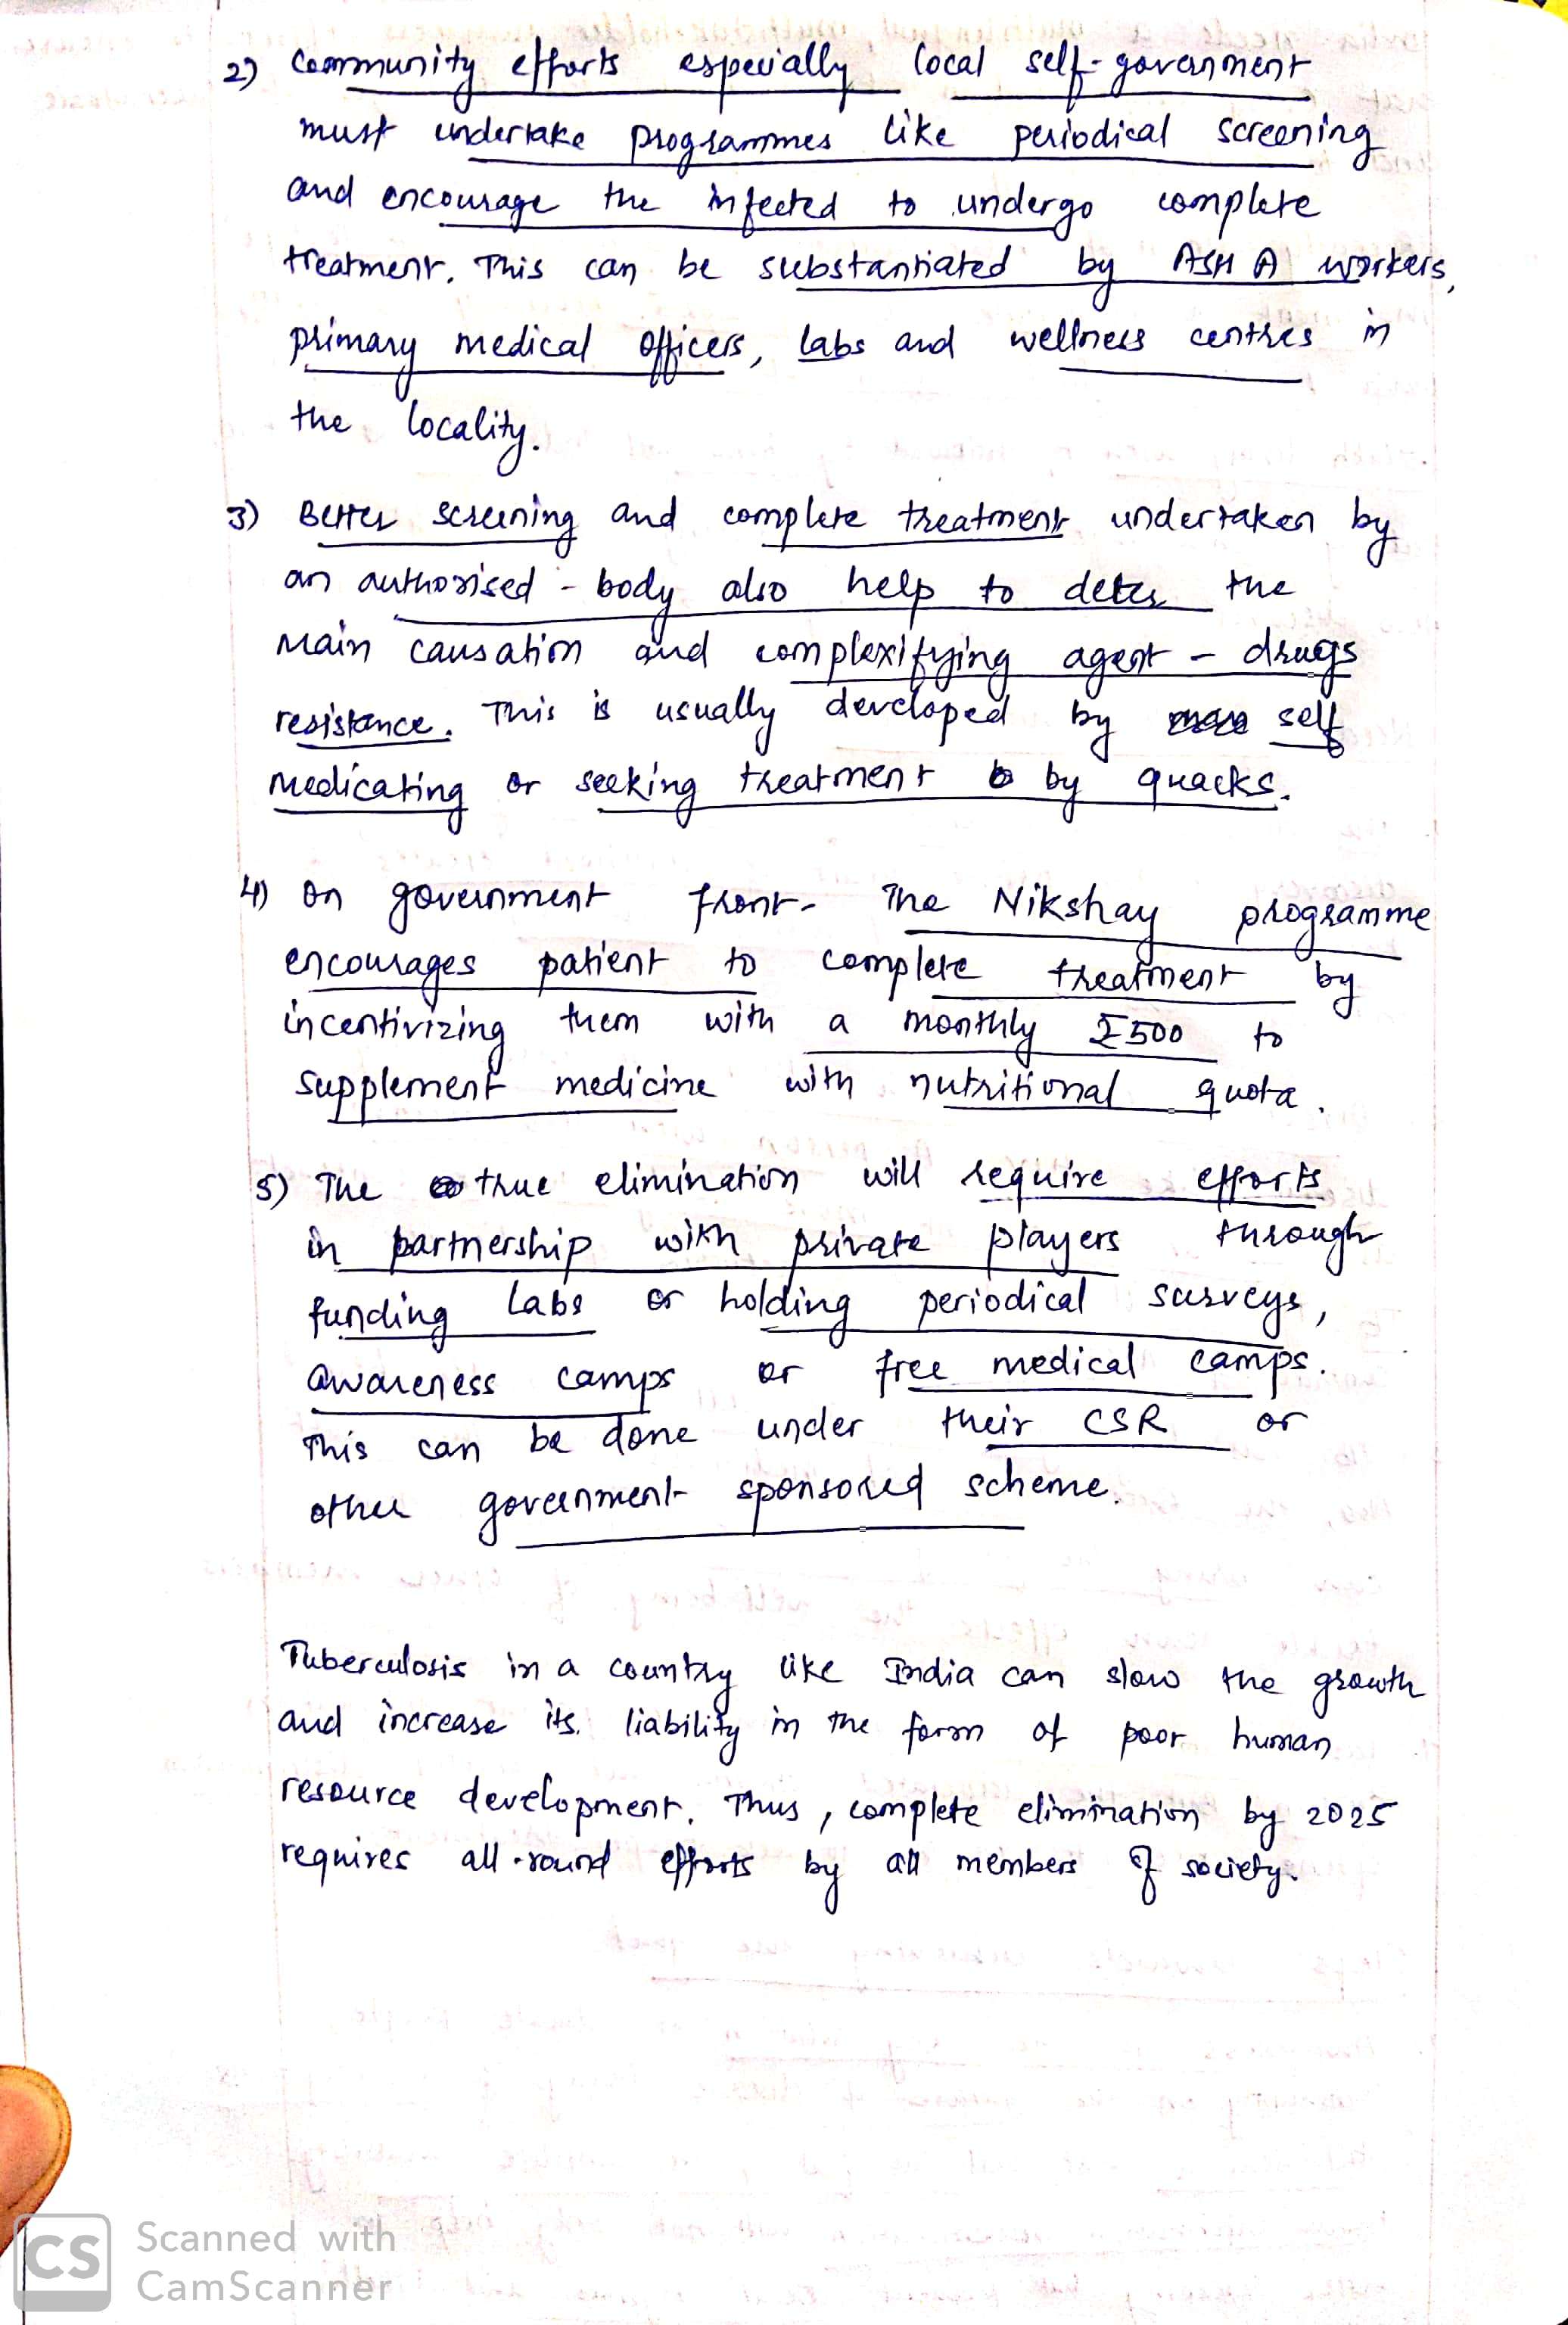 2) Community efforts especially local self-government
must undertake programmes like periodical screening
and encourage the infected to undergo complete
treatment. This can be substantiated by ASHA workers,
primary medical officers, labs and wellness centres in
the locality.
3) Better screening and complete treatment undertaken by
an authorised - body also help to deter the
main causation and complexifying agent - drugs
resistance. This is usually developed by self
medicating or seeking treatment by quacks.
4) On government front - The Nikshay programme
encourages patient to complete treatment by
incentivizing them with a monthly ₹500 to
supplement medicine with nutritional quota.
5) The true elimination will require efforts
in partnership with private players through
funding labs or holding periodical surveys,
awareness camps or free medical camps.
This can be done under their CSR or
other government sponsored scheme.
Tuberculosis in a country like India can slow the growth
and increase its liability in the form of poor human
resource development. Thus, complete elimination by 2025
requires all-round efforts by all members of society.
CS Scanned with
CamScanner